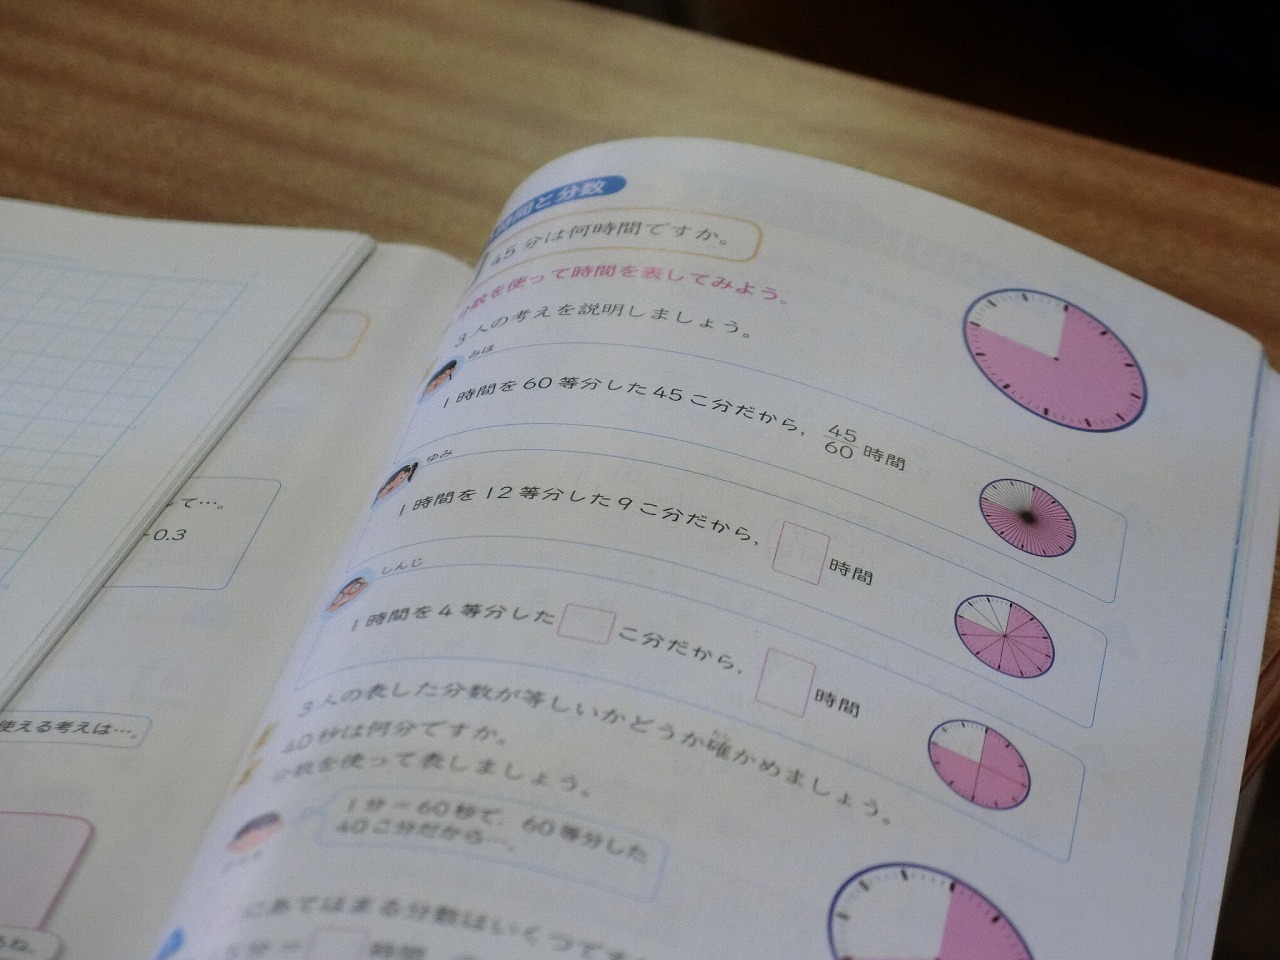 して…。
-0.3
使える考えは…。
時間と分数
45分は何時間ですか。
分数を使って時間を表してみよう。
3人の考えを説明しましょう。
みほ
1時間を60等分した45こ分だから, 45/60 時間
ゆみ
1時間を12等分した9こ分だから, 時間
しんじ
1時間を4等分した こ分だから, 時間
3人の表した分数が等しいかどうか確かめましょう。
40秒は何分ですか。
分数を使って表しましょう。
1分=60秒で、60等分した
40こ分だから…。
にあてはまる分数はいくつです
分= 時間